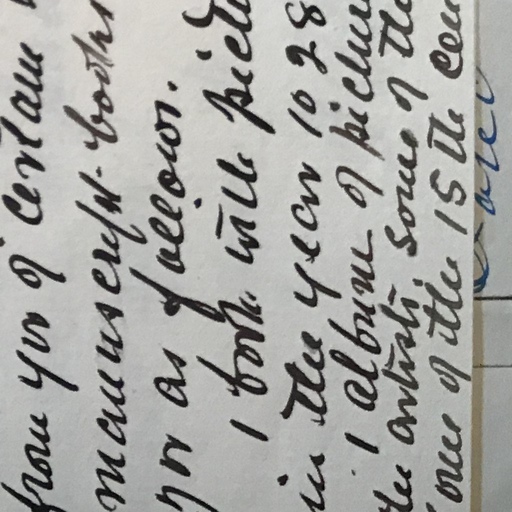 from you of certain
manuscript books
you as follows.
1 book with pict
in the year 1028
1 album of pictur
the artists, some of the
some of the 15th cen